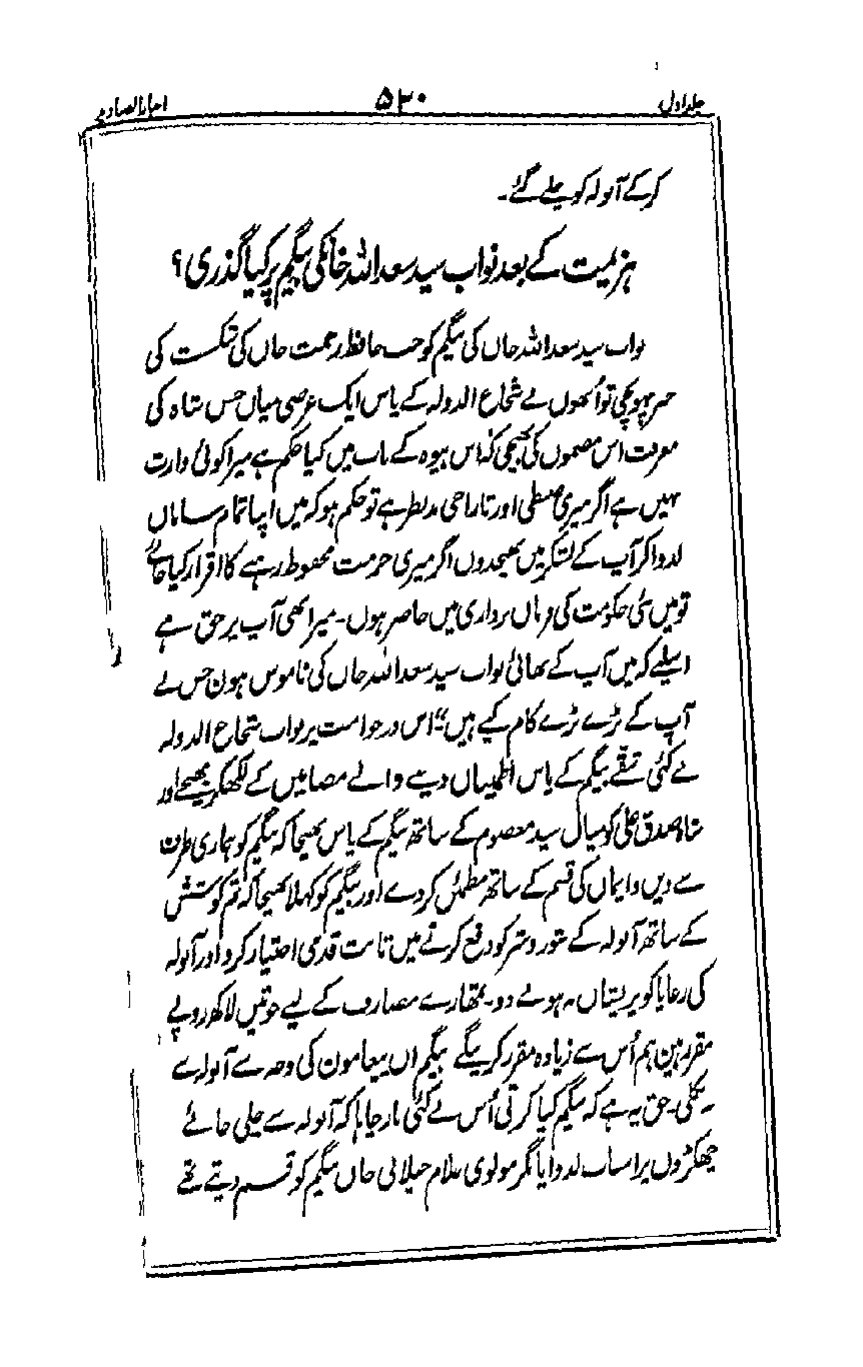 جلد اول ۵۳۰ اخبار الصنادید
کرکے آنولہ کو چلے گئے۔
ہزیمت کے بعد نواب سید سعد اللہ خاں کی بیگم پر کیا گذری؟
نواب سید سعد اللہ خاں کی بیگم کو جب حافظ رحمت خاں کی شکست کی
خبر پہونچی تو اُنھوں نے شجاع الدولہ کے پاس ایک عرضی میاں حسن شاہ کی
معرفت اس مضمون کی بھیجی کہ اس بیوہ کے باب میں کیا حکم ہے میرا کوئی وارث
نہیں ہے اگر میری ضبطی اور تاراجی مدنظر ہے تو حکم ہو کہ میں اپنا تمام سامان
لدوا کر آپ کے لشکر میں بھیجدوں اگر میری حرمت محفوظ رہنے کا اقرار کیا جائے
تو میں نئی حکومت کی فرماں برداری میں حاضر ہوں۔ میرا بھی آپ پر حق ہے
اسلیے کہ میں آپ کے بھائی نواب سید سعد اللہ خاں کی ناموس ہون جس نے
آپ کے بڑے بڑے کام کیے ہیں“ اس درخواست پر نواب شجاع الدولہ
نے کئی شقّے بیگم کے پاس اطمینان دینے والے مضامین کے لکھکر بھیجے اور
شاہ صدق علی کو میاں سید معصوم کے ساتھ بیگم کے پاس بھیجا کہ بیگم کو ہماری طرف
سے دین و ایمان کی قسم کے ساتھ مطمئن کردے اور بیگم کو کہلا بھیجا کہ تم کوشش
کے ساتھ آنولہ کے شور و شر کو دفع کرنے میں ثابت قدمی اختیار کرو اور آنولہ
کی رعایا کو پریشان نہ ہونے دو۔ تمھارے مصارف کے لیے جو تین لاکھ روپے
مقرر ہین ہم اُس سے زیادہ مقرر کرینگے بیگم ان پیغامون کی وجہ سے آنولے سے
نہ نکلی۔ حق یہ ہے کہ بیگم کیا کرتی اُس نے کئی بار چاہا کہ آنولہ سے چلی جائے
چھکڑوں پر اسباب لدوایا مگر مولوی غلام جیلانی خاں بیگم کو قسم دیتے تھے